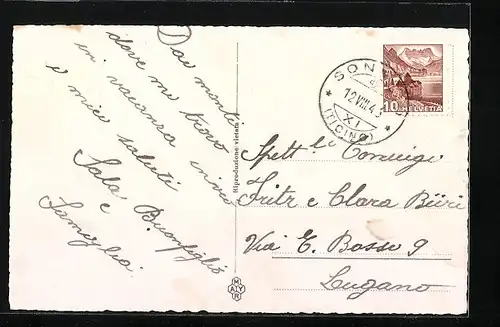 Dai monti
dove mi trovo
in vacanza invio
i miei saluti
Sala Buonfiglio
e
Famiglia.
Riproduzione vietata
MAYR
SON
12.VIII.43
XI
(TICINO)
10 HELVETIA
Spett.li Coniugi
Fritz e Clara Büri
Via E. Bosso 9
Lugano